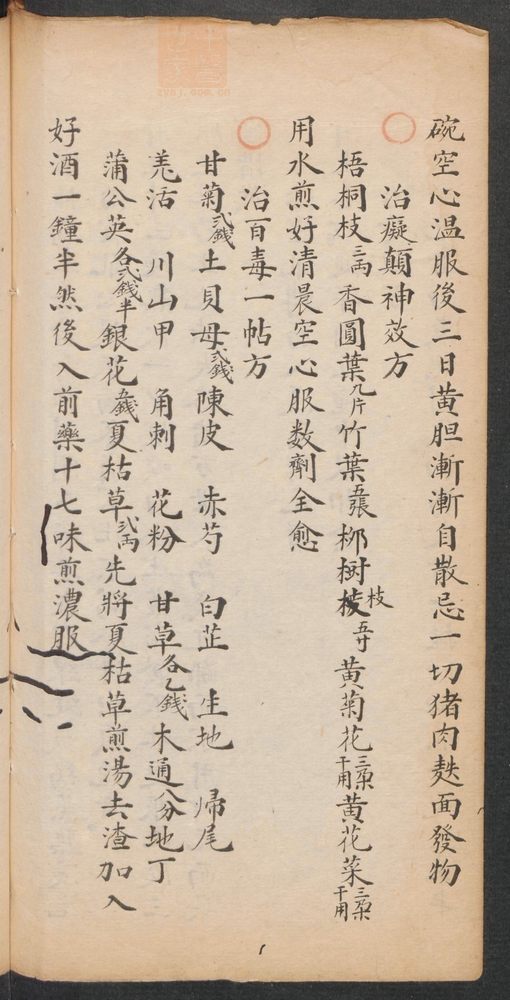 碗空心温服後三日黄胆漸漸自散忌一切猪肉麸面發物
治癡顛神效方
梧桐枝三兩香圓葉九片竹葉五張柳树枝五寸黄菊花三朵干用黄花菜三朵干用
用水煎好清晨空心服数劑全愈
治百毒一帖方
甘菊弍錢土貝母弍錢陳皮 赤芍 白芷 生地 帰尾
羌活 川山甲 角刺 花粉 甘草各乙錢木通八分地丁
蒲公英各弍錢半銀花五錢夏枯草弍兩先將夏枯草煎湯去渣加入
好酒一鐘半然後入前藥十七味煎濃服